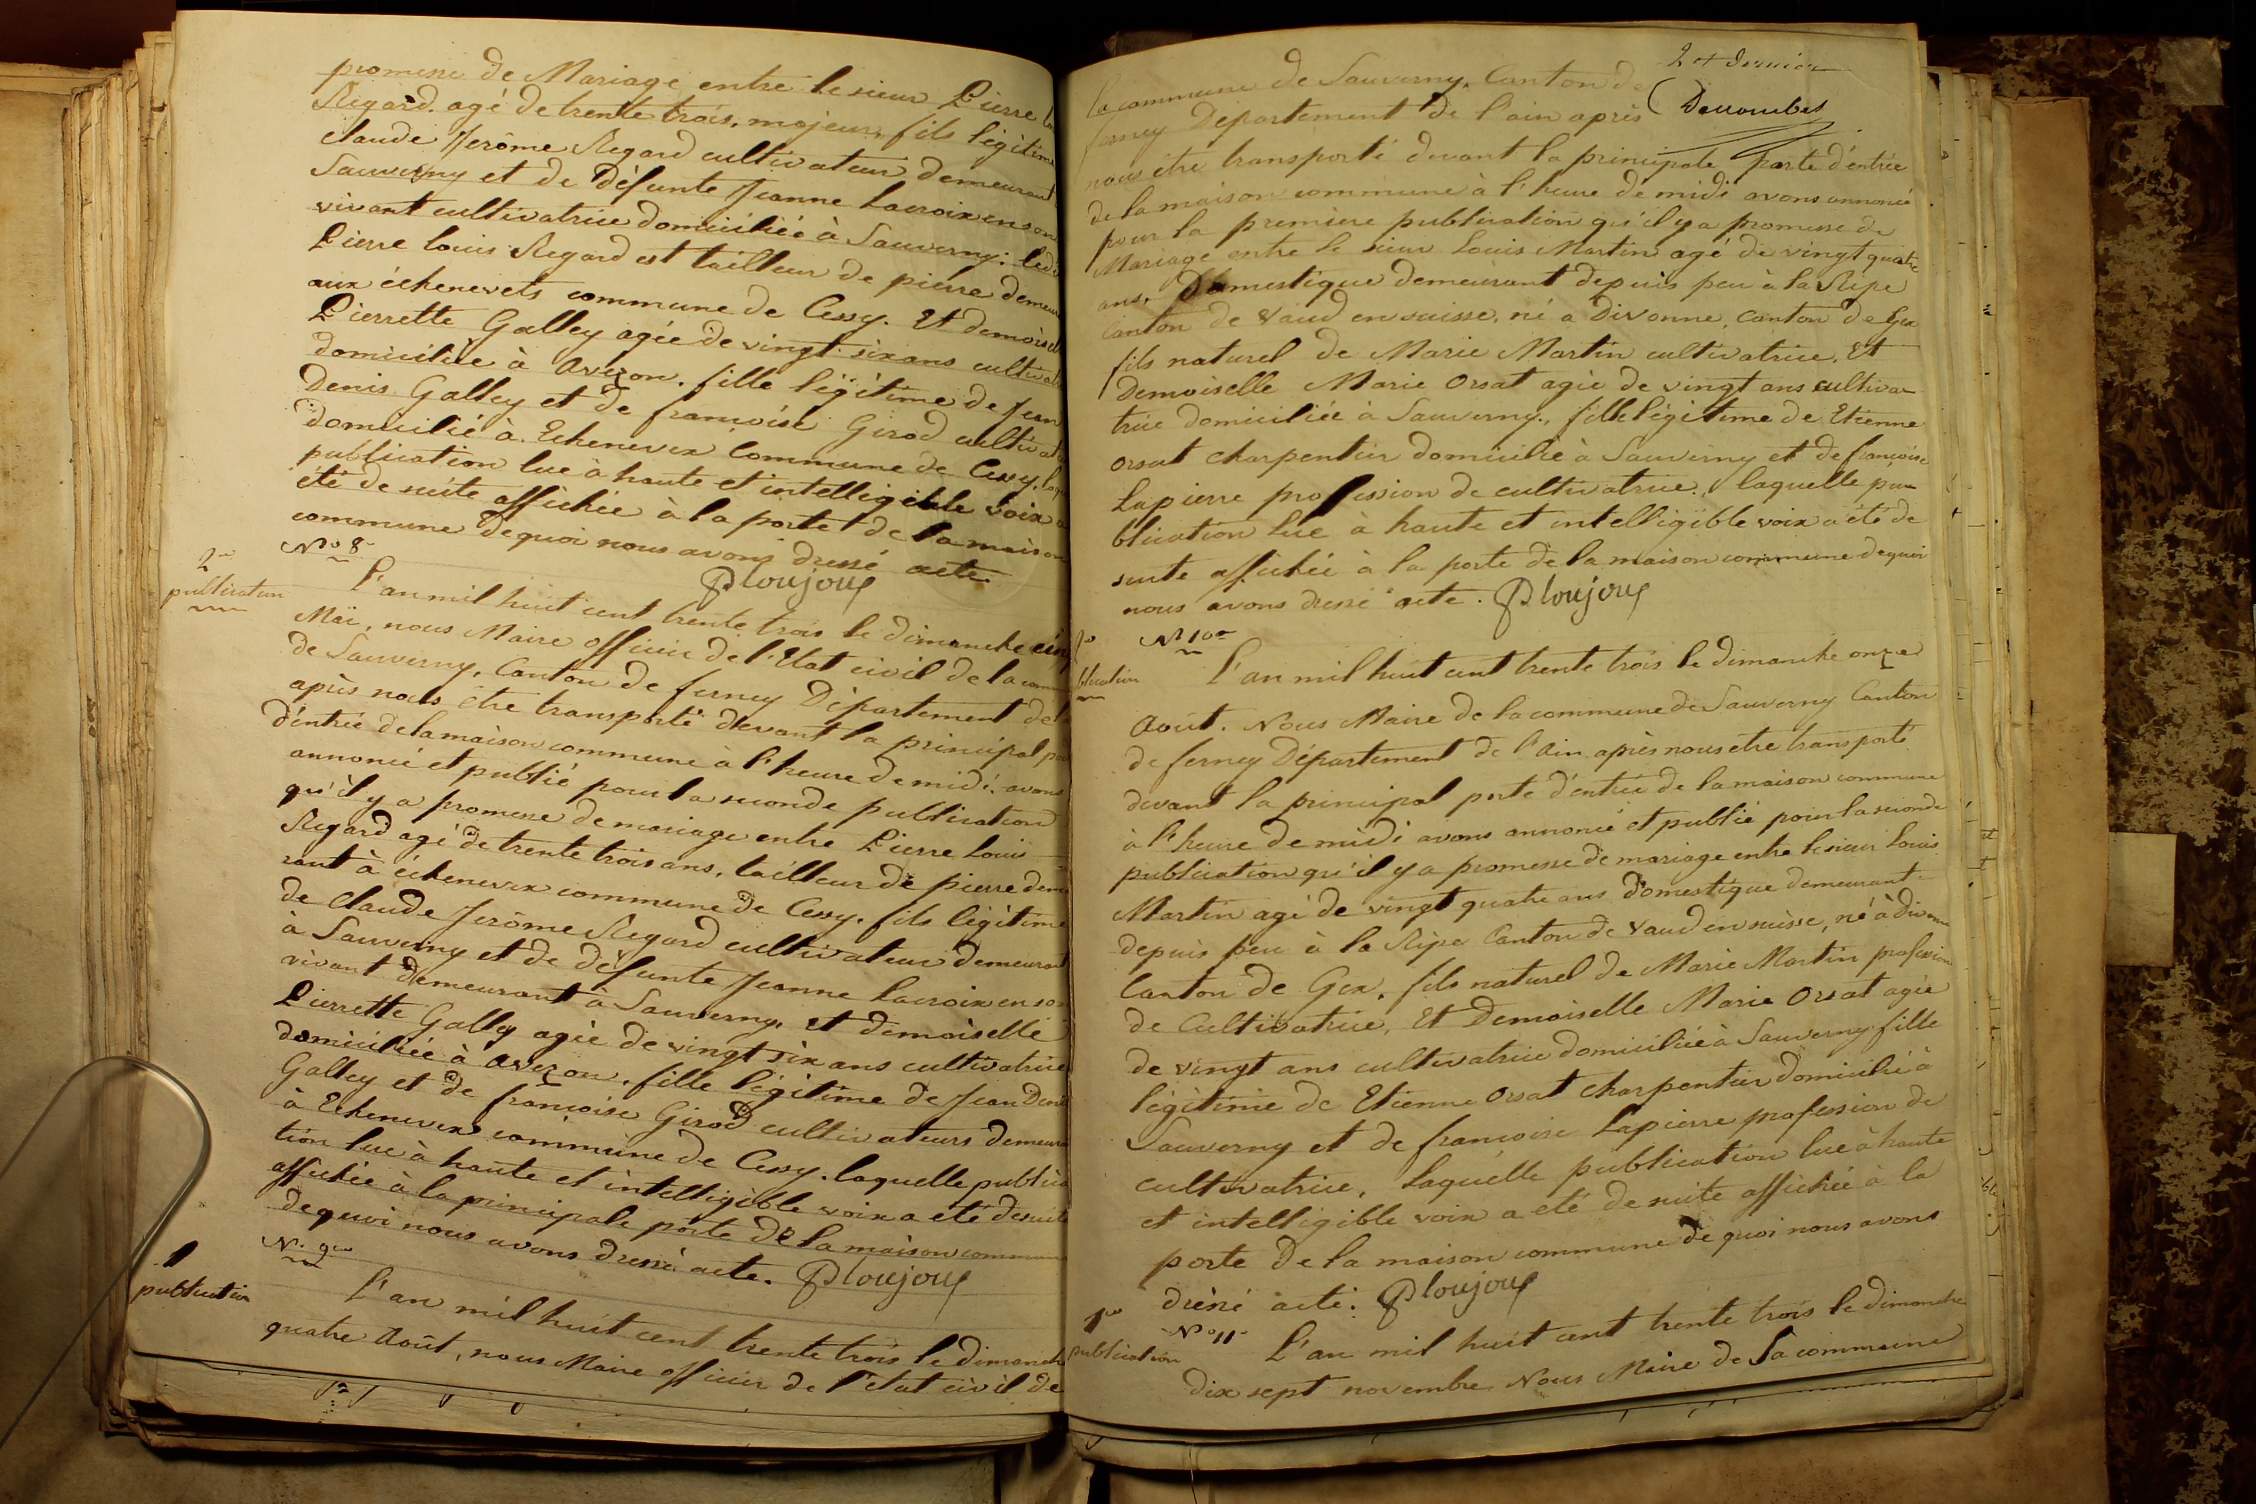 promesse de Mariage entre le sieur Pierre
Regard. agé de trente trois, majeur, fils légitime
Claude Jerôme Regard cultivateur demeurant
Sauverny et de Défunte Jeanne Lacroix en son
vivant cultivatrice domiciliée à Sauverny: ledi
Pierre Louis Regard est tailleur de pierre demeur
aux échenevets commune de Cessy. Et demoisel
Pierrette Galley agée de vingt six ans cultivat
domiciliée à Avezon. fille légitime de Jean
Denis Galley et de françoise Girod cultivat
domicilié à Echenevex Commune de Cessy. laq
publication lue à haute et intelligible voix a
été de suite affichée à la porte de la maison
commune dequoi nous avons dressé acte.
Ploujoux
2me
publication
No 8
L'an mil huit cent trente trois le dimanche cinq
Mai, nous Maire officier de l'Etat civil de la comm
de Sauverny, Canton de ferney Département de
après nous être transporté devant la principal por
d'entrée de la maison commune à l'heure de midi. avons
annoncé et publié pour la seconde publication
qu'il y a promesse de mariage entre Pierre Louis
Regard agé de trente trois ans, tailleur de pierre deme
rant à échenevex commune de Cessy. fils légitime
de Claude Jerôme Regard cultivateur demeurant
à Sauverny et de défunte Jeanne Lacroix en son
vivant demeurant à Sauverny. et demoiselle
Pierrette Galley agée de vingt six ans cultivatrice
domiciliée à Avezon. fille légitime de Jean Denis
Galley et de françoise Girod cultivateurs demeura
à Echenevex commune de Cessy. laquelle publica
tion lue à haute et intelligible voix a eté desuite
affichée à la principale porte de la maison commune
dequoi nous avons dressé acte. Ploujoux
1
publication
No 9
L'an mil huit cent trente trois le dimanche
quatre Août, nous Maire officier de l'état civil de
2 et dernier
la commune de Sauverny, Canton de
ferney Département de l'ain après
nous être transporté devant la principale porte d'entrée
de la maison commune à l'heure de midi avons annoncé
pour la première publication qu'il y a promesse de
Mariage entre le sieur Louis Martin agé de vingt quatre
ans, Domestique demeurant depuis peu à la Ripe
Canton de Vaud en suisse, né a Divonne, canton de Gex
fils naturel de Marie Martin cultivatrice. Et
Demoiselle Marie Orsat agée de vingt ans cultiva-
trice domiciliée à Sauverny., fille légitime de Etienne
Orsat charpentier domicilié à Sauverny et de françoise
Lapierre profession de cultivatrice., laquelle pu-
blication lue à haute et intelligible voix a été de
suite affichée à la porte de la maison commune dequoi
nous avons dressé acte. Ploujoux
blication
No 10
L'an mil huit cent trente trois le dimanche onze
Août. Nous Maire de la commune de Sauverny Canton
de ferney Département de l'Ain après nous être transporté
devant la principal porte d'entrée de la maison commune
à l'heure de midi avons annoncé et publié pour la seconde
publication qu'il y a promesse de mariage entre le sieur Louis
Martin agé de vingt quatre ans domestique demeurant
depuis peu à la Ripe Canton de Vaud en suisse, né à divonne
Canton de Gex. fils naturel de Marie Martin profession
de Cultivatrice, Et Demoiselle Marie Orsat agée
de vingt ans cultivatrice domiciliée à Sauverny fille
légitime de Etienne Orsat charpentier domicilié à
Sauverny et de françoise Lapierre profession de
cultivatrice, laquelle publication lue à haute
et intelligible voix a eté de suite affichée à la
porte de la maison commune de quoi nous avons
dressé acte. Ploujoux
1re
publication
No 11
L'an mil huit cent trente trois le dimanche
dix sept novembre Nous Maire de la commune